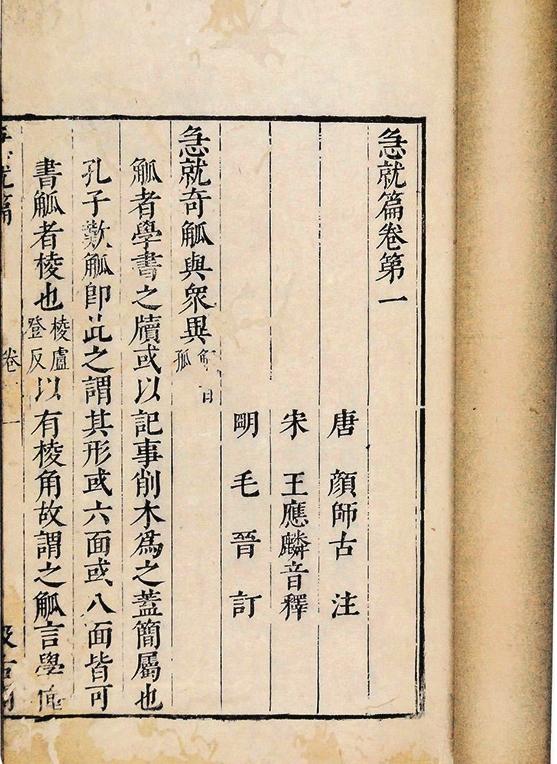 急就篇卷第一
唐 顏師古 注
宋 王應麟音釋
明 毛晉 訂
急就奇觚與衆異
觚音
孤
觚者學書之牘或以記事削木為之蓋簡屬也
孔子歎觚即此之謂其形或六面或八面皆可
書觚者棱也
棱盧
登反
以有棱角故謂之觚言學
急就篇
卷一
汲古閣